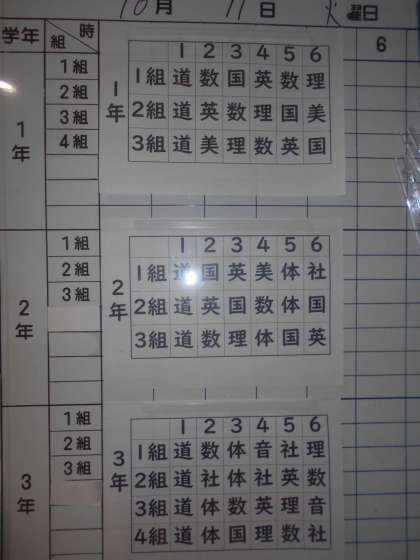 10月 11日 火曜日
学年 組 時 6
1年
1組
2組
3組
4組
1年
1 2 3 4 5 6
1組 道 数 国 英 数 理
2組 道 英 数 理 国 美
3組 道 美 理 数 英 国
2年
1組
2組
3組
2年
1 2 3 4 5 6
1組 道 国 英 美 体 社
2組 道 英 国 数 体 国
3組 道 数 理 体 国 英
3年
1組
2組
3組
3年
1 2 3 4 5 6
1組 道 数 体 音 社 理
2組 道 社 体 社 英 数
3組 道 体 数 英 理 音
4組 道 体 国 理 数 社